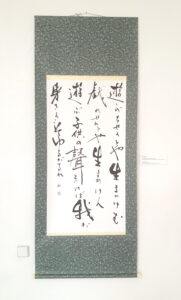 遊びをせんとや生まれけむ
戯れせんとや生まれけん
遊ぶ子供の聲聞けば我が
身さへこそゆるがるれ